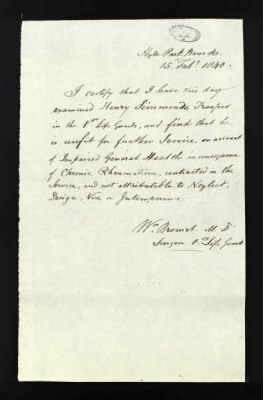 Hyde Park Barracks.
15. Feby. 1840.
I certify that I have this day
examined Henry Simmonds, Trooper
in the 1st Life Guards, and find that he
is unfit for further Service on account
of Impaired General Health in consequence
of Chronic Rheumatism, contracted in the
Service, and not attributable to Neglect,
Design, Vice or Intemperance.
Wm. Bromet M D
Surgeon 1st Life Guards